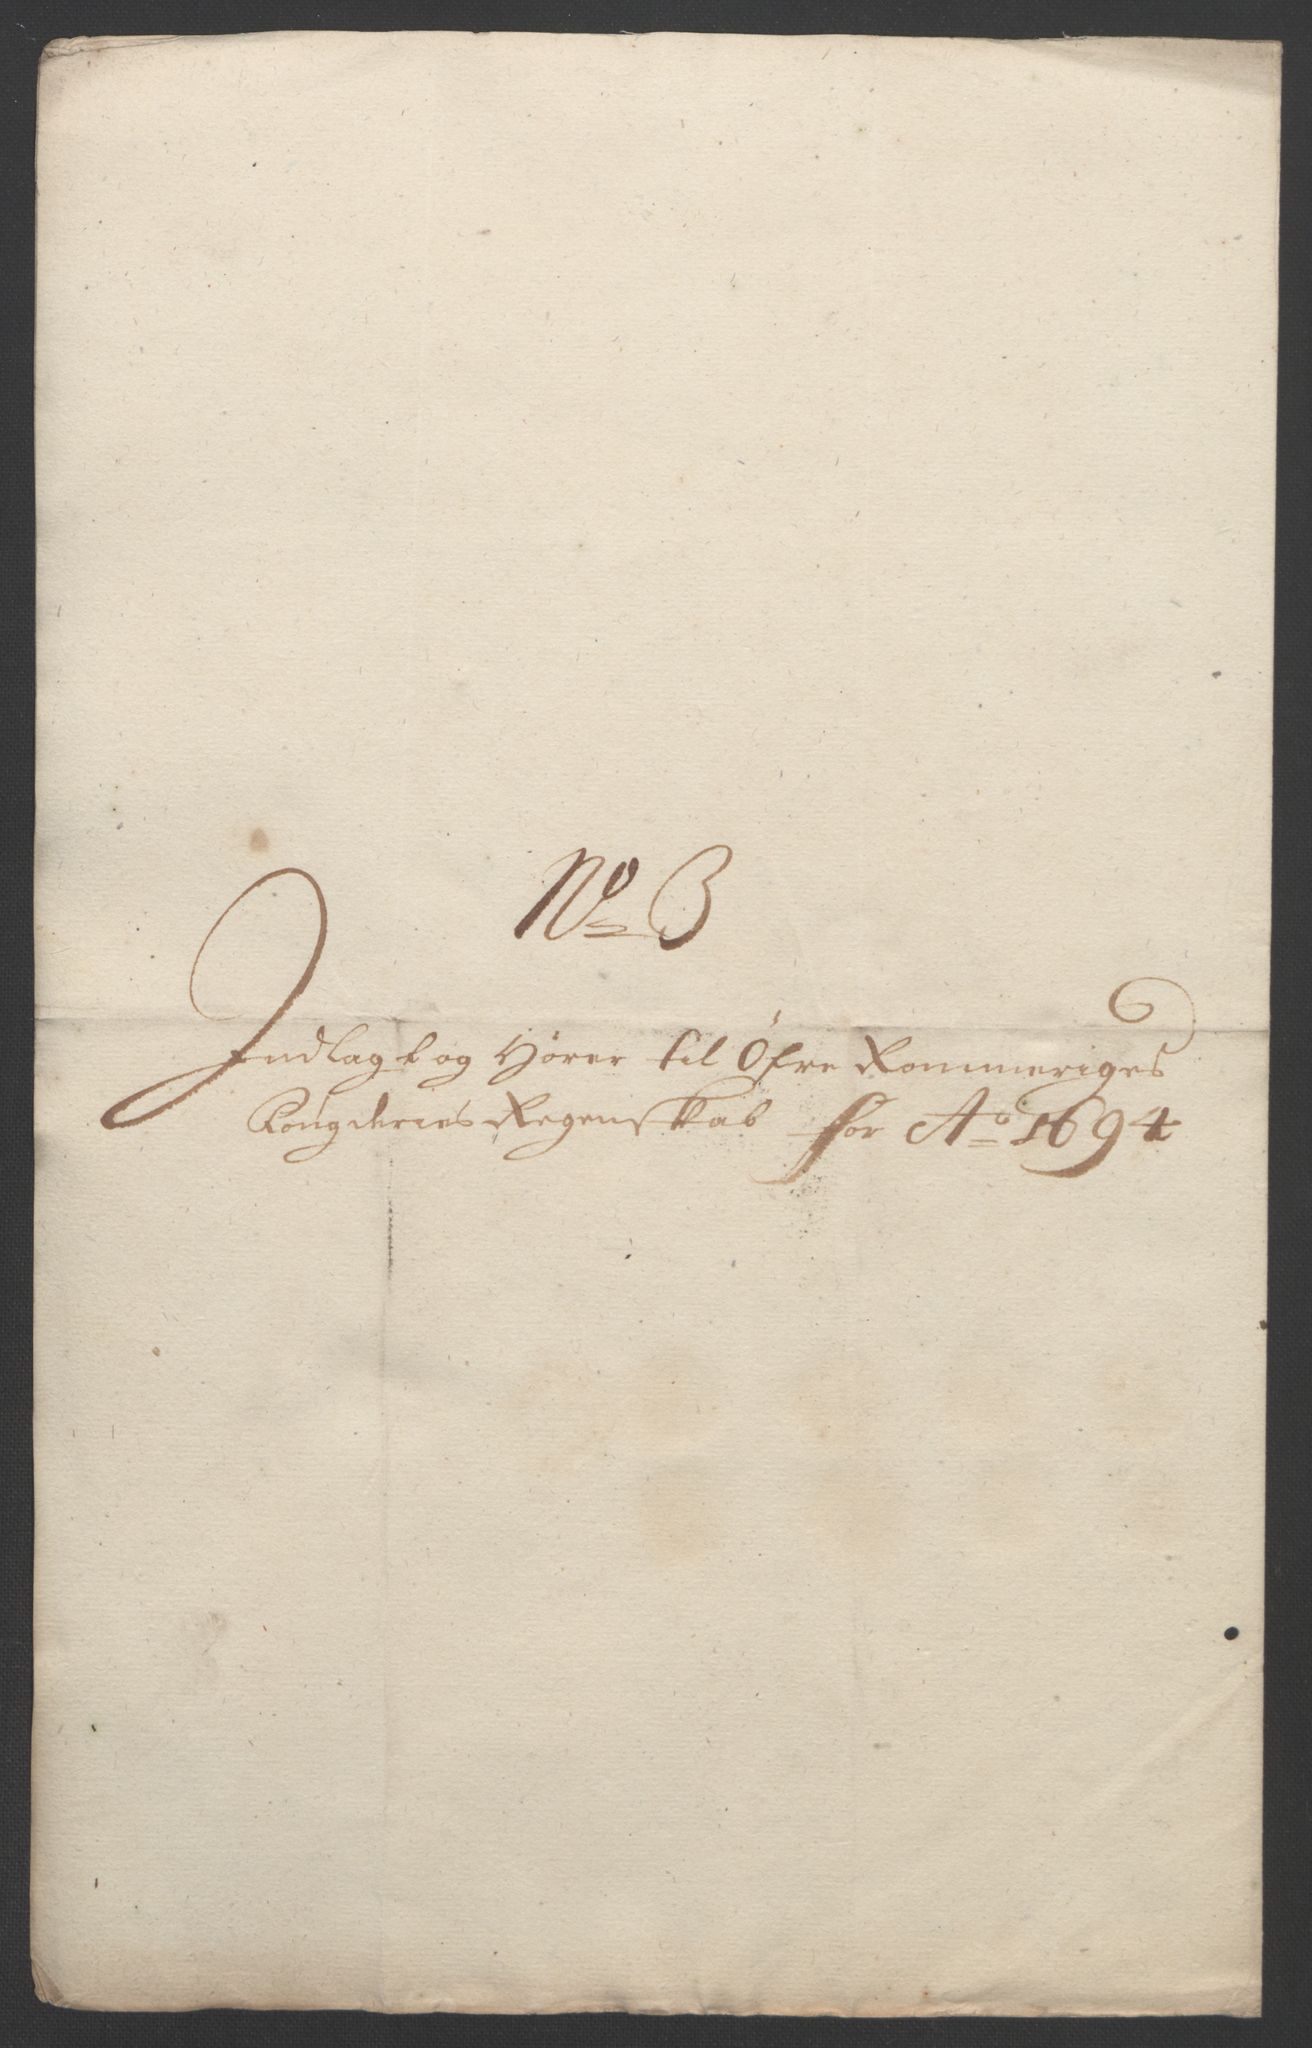 No 3
Indlagt og Hører til Øfre Rommeriges
Fougderies Regenskab for Ao 1694